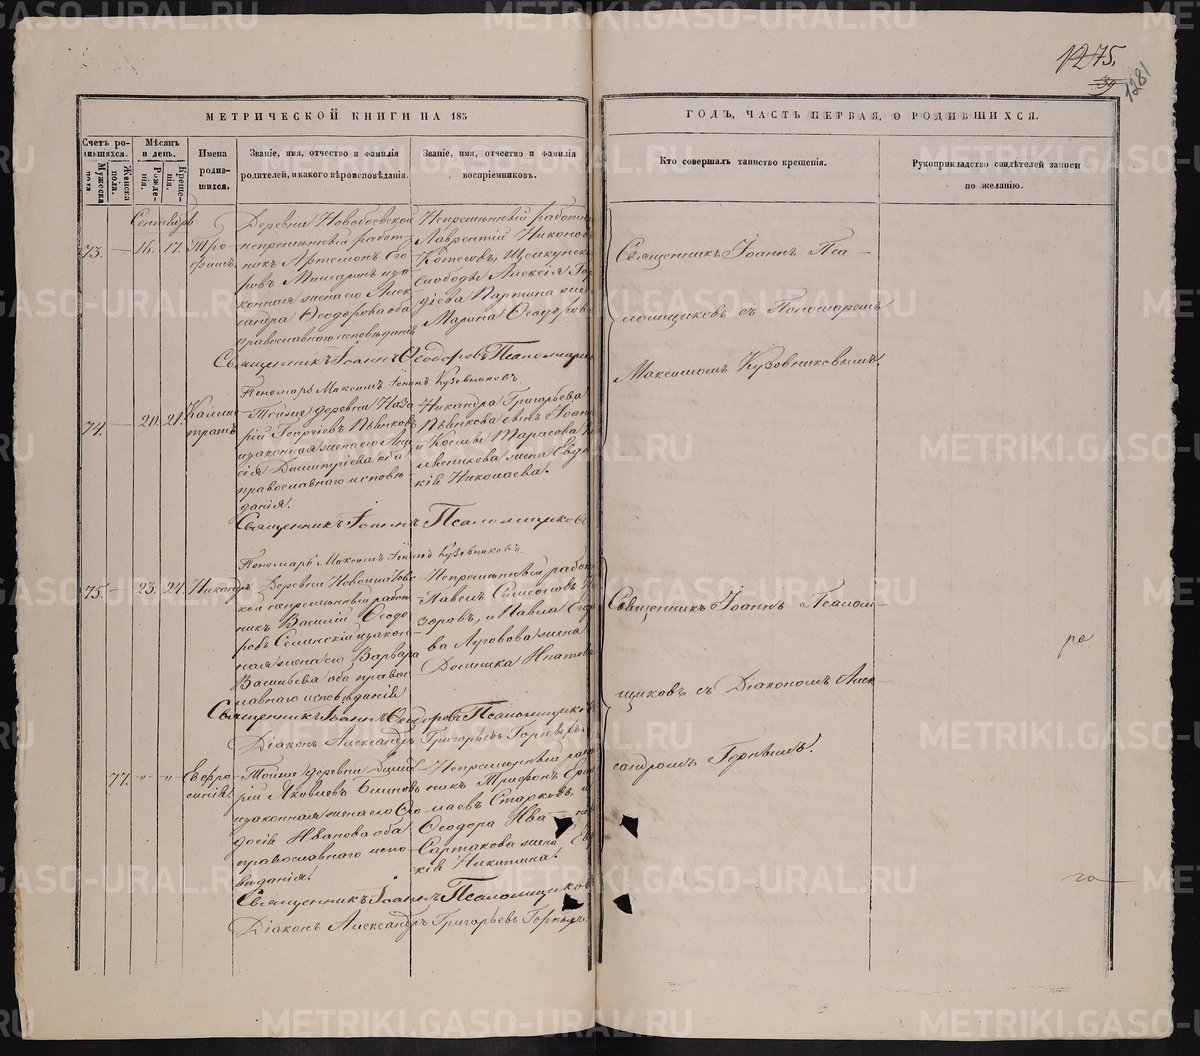 1275.
39
1281
МЕТРИЧЕСКОЙ КНИГИ НА 185
ГОДЪ, ЧАСТЬ ПЕРВАЯ, О РОДИВШИХСЯ.
Счетъ родившихся.
Мужеска пола.
Женска пола.
Мѣсяцъ и день.
Рожденія.
Крещенія.
Имена родившихся.
Званіе, имя, отчество и фамилія родителей, и какого вѣроисповѣданія.
Званіе, имя, отчество и фамилія воспріемниковъ.
Кто совершалъ таинство крещенія.
Рукоприкладство свидѣтелей записи по желанію.
Сентябрь
73. — 16. 17. Трофимъ.
Деревни Новобаевской
непремѣнный работ-
никъ Артемонъ Его-
ровъ Мишаринъ и за-
конная жена его Алек-
сандра Ѳеодорова оба
православнаго исповѣданія
Непремѣнный работн
Лаврентій Никонов
Котеговъ, Щелкунск
слободы Алексія
діева Партина жен
Марина Ѳеодоров
Священникъ Іоаннъ Пса-
ломщиковъ съ Пономаремъ
Максимомъ Кузовниковымъ.
Священникъ Іоаннъ Ѳеодоровъ Псаломщик
Пономарь Максимъ Іонинъ Кузовниковъ.
74. — 20. 21. Калистратъ
Тойже деревни Наза-
рій Георгіевъ Пьянковъ
и законная жена его Ана-
сія Димитріева оба
православнаго исповѣ-
данія.
Никандра Григорьева
Пьянкова сынъ Іоанн
и Космы Тарасова
мѣсникова жена Евдо
кія Николаева.
Священникъ Іоаннъ Псаломщиковъ
Пономарь Максимъ Іонинъ Кузовниковъ.
75. — 23. 24. Никандръ
Деревни Новоипатовс-
кой непремѣнный работ-
никъ Василій Ѳеодо-
ровъ Селинскій и закон-
ная жена его Варвара
Васильева оба правос-
лавнаго исповѣданія
Непремѣнный работ
Павелъ Симеоновъ
зоровъ, и Павла Его
ва Луговова жена
Домника Ипатова
Священникъ Іоаннъ Псалом-
щиковъ съ Діакономъ Алек-
сандромъ Горнымъ.
ра
Священникъ Іоаннъ Ѳеодоровъ Псаломщиковъ
Діаконъ Александръ Григорьевъ Горныхъ.
77. " " Евфросинія
Тойже деревни Дими-
рій Яковлевъ Блиновъ
и законная жена его Ѳео-
досія Иванова оба
православнаго испо-
вѣданія.
Непремѣнный работ
никъ Трифонъ
маевъ Старковъ, и
Ѳеодора Ива
Сартакова жена
кія Никитина.
го
Священникъ Іоаннъ Псаломщиковъ
Діаконъ Александръ Григорьевъ Горныхъ.
METRIKI.GASO-URAL.RU